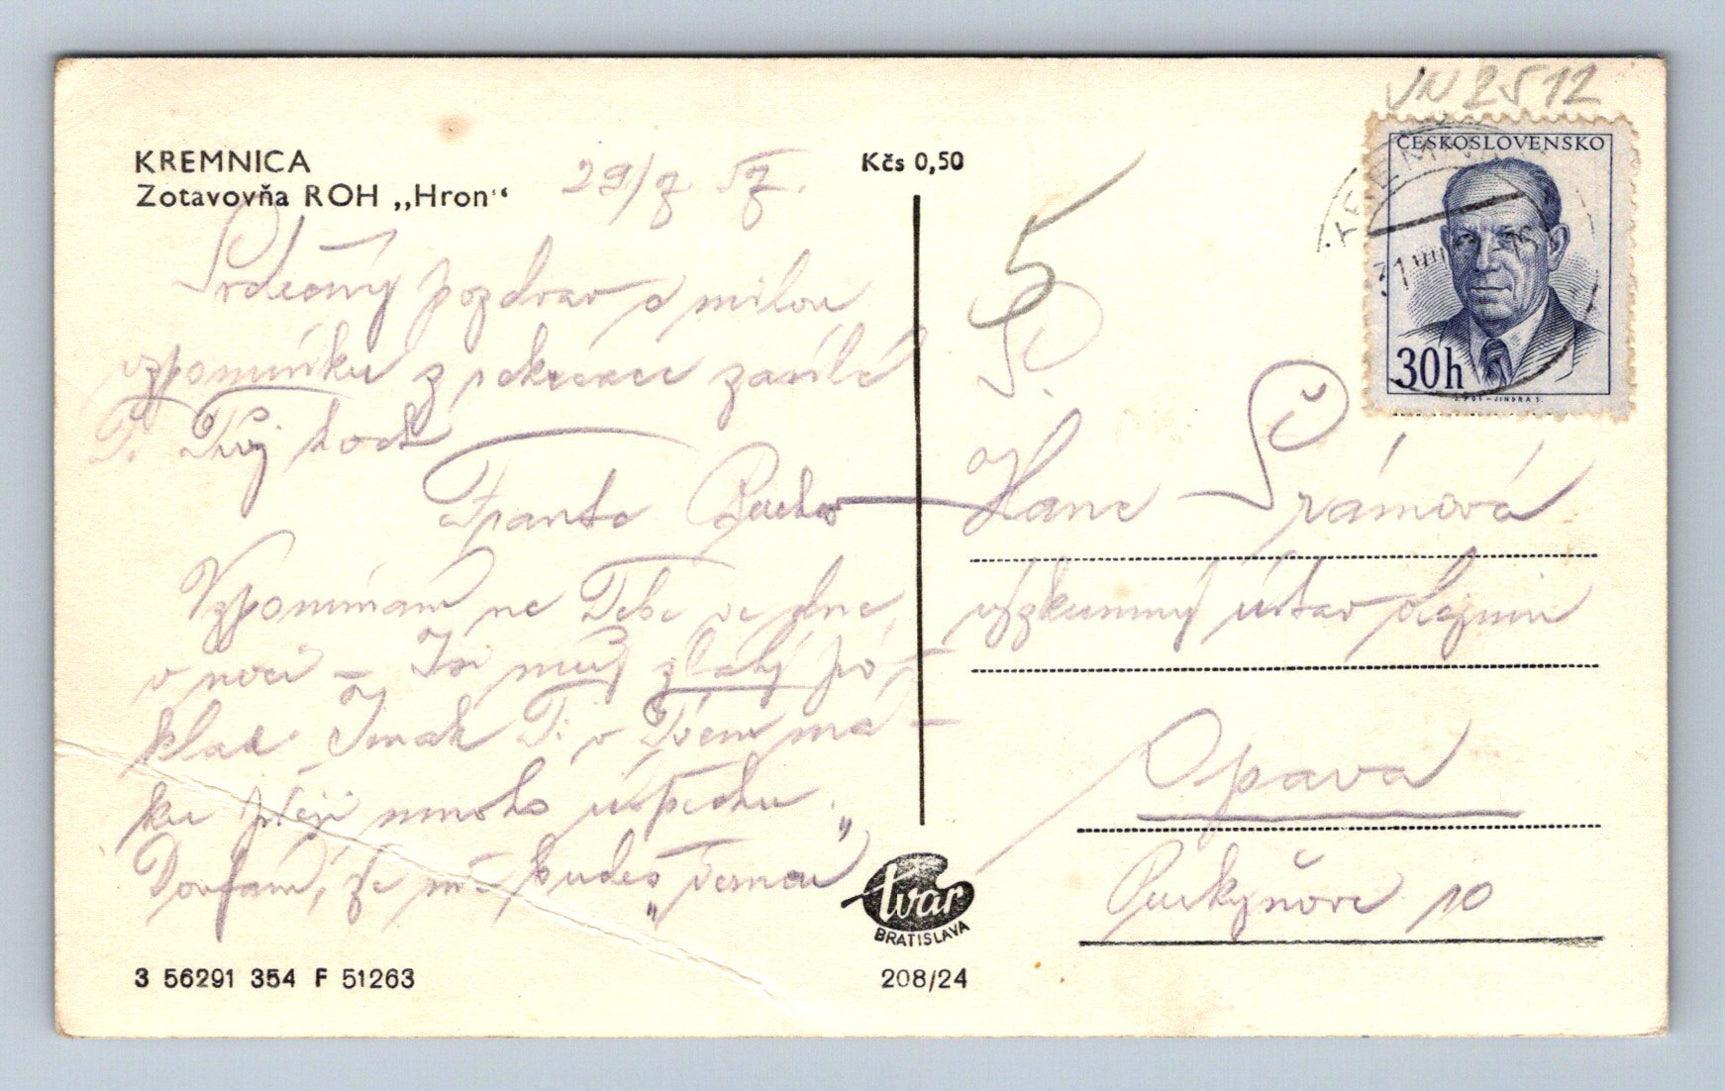 VN 2512
KREMNICA
Zotavovňa ROH „Hron“
29/7 57.
Kčs 0,50
ČESKOSLOVENSKO
30h
5
Srdečný pozdrav a milou
vzpomínku z rekreace zasílá
Ti Tvůj hoch
Franta
Vzpomínám na Tebe ve dne,
v noci – Jsi můj zlatý po-
klad. Jinak Ti v Tvém má-
ku přeji mnoho úspěchu.
Doufám, že mě budeš „věrnou”
Sl.
Hana Šrámová
výzkumný ústav olejnin
Opava
Purkyňova 10
tvar
BRATISLAVA
3 56291 354 F 51263
208/24